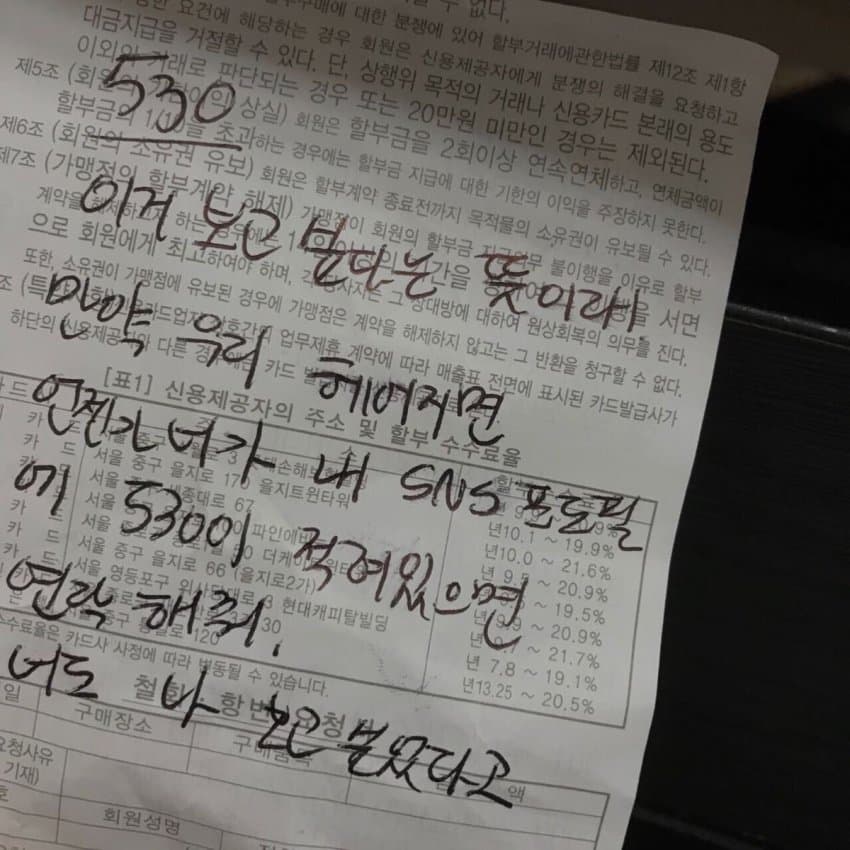 수 없다.
구매에 대한 분쟁에 있어 할부거래에관한법률 제12조 제1항
요건에 해당하는 경우 회원은 신용제공자에게 분쟁의 해결을 요청하고
대금지급을 거절할 수 있다. 단, 상행위 목적의 거래나 신용카드 본래의 용도
이외의 거래로 판단되는 경우 또는 20만원 미만인 경우는 제외된다.
제5조 (회 상실) 회원은 할부금을 2회이상 연속연체하고, 연체금액이
할부금의 1/10을 초과하는 경우에는 할부금 지급에 대한 기한의 이익을 주장하지 못한다.
제6조 (회원의 소유권 유보) 회원은 할부계약 종료전까지 목적물의 소유권이 유보될 수 있다.
제7조 (가맹점의 할부계약 해제) 가맹점이 회원의 할부금 지급의무 불이행을 이유로 할부
계약을 해제하 하는 경우에는 1 기간을 서면
으로 회원에게 최고하여야 하며, 각 당사자는 그 상대방에 대하여 원상회복의 의무를 진다.
또한, 소유권이 가맹점에 유보된 경우에 가맹점은 계약을 해제하지 않고는 그 반환을 청구할 수 없다.
조 (특 카드업자 상호간의 업무제휴 계약에 따라 매출표 전면에 표시된 카드발급사가
하단의 신용제공자와 다른 경우 카드
[표1] 신용제공자의 주소 및 할부 수수료율
카드 서울 중구 3 손해보험
카드 서울 중구 을지로 170 을지트윈타워
카드 서울 세종대로 67
카드 서울 파인에비
카드 서울 50 더케이트윈타
카드 서울 중구 을지로 66 (을지로2가)
카드 서울 영등포구 의사당대로 3 현대캐피탈빌딩
서울 종로 30
서울 중구 120
9%
년10.1 ~ 19.9%
년10.0 ~ 21.6%
년 9. ~ 20.9%
~ 19.5%
9.9 ~ 20.9%
~ 21.7%
년 7.8 ~ 19.1%
년13.25 ~ 20.5%
수수료율은 카드사 사정에 따라 변동될 수 있습니다.
철회 항변 요청
일 구매장소 구매품목 액
요청사유
기재)
호 회원성명
530
이거 보고 싶다는 뜻이래!
만약 우리 헤어지면
언젠가 너가 내 SNS 프로필
에 530이 적혀있으면
연락 해줘.
너도 나 보고 싶었다고